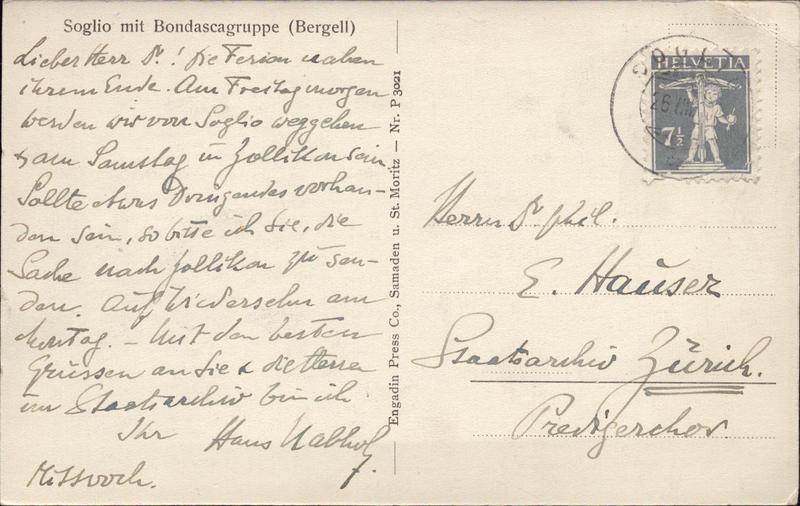 Soglio mit Bondascagruppe (Bergell)
Lieber Herr Dr.! Die Ferien nahen
ihrem Ende. Am Freitag morgen
werden wir von Soglio weggehen
& am Samstag in Zollikon sein.
Sollte etwas Dringendes vorhan-
den sein, so bitte ich Sie, die
Sache nach Zollikon zu sen-
den. Auf Wiedersehn am
Montag. – Mit den besten
Grüssen an Sie & die Herren
im Staatsarchiv bin ich
Ihr Hans Nabholz.
Mittwoch.
Engadin Press Co., Samaden u. St. Moritz — Nr. P 3021
HELVETIA
7½
SOGLIO
26
Herrn Dr phil.
E. Hauser
Staatsarchiv Zürich.
Predigerchor.